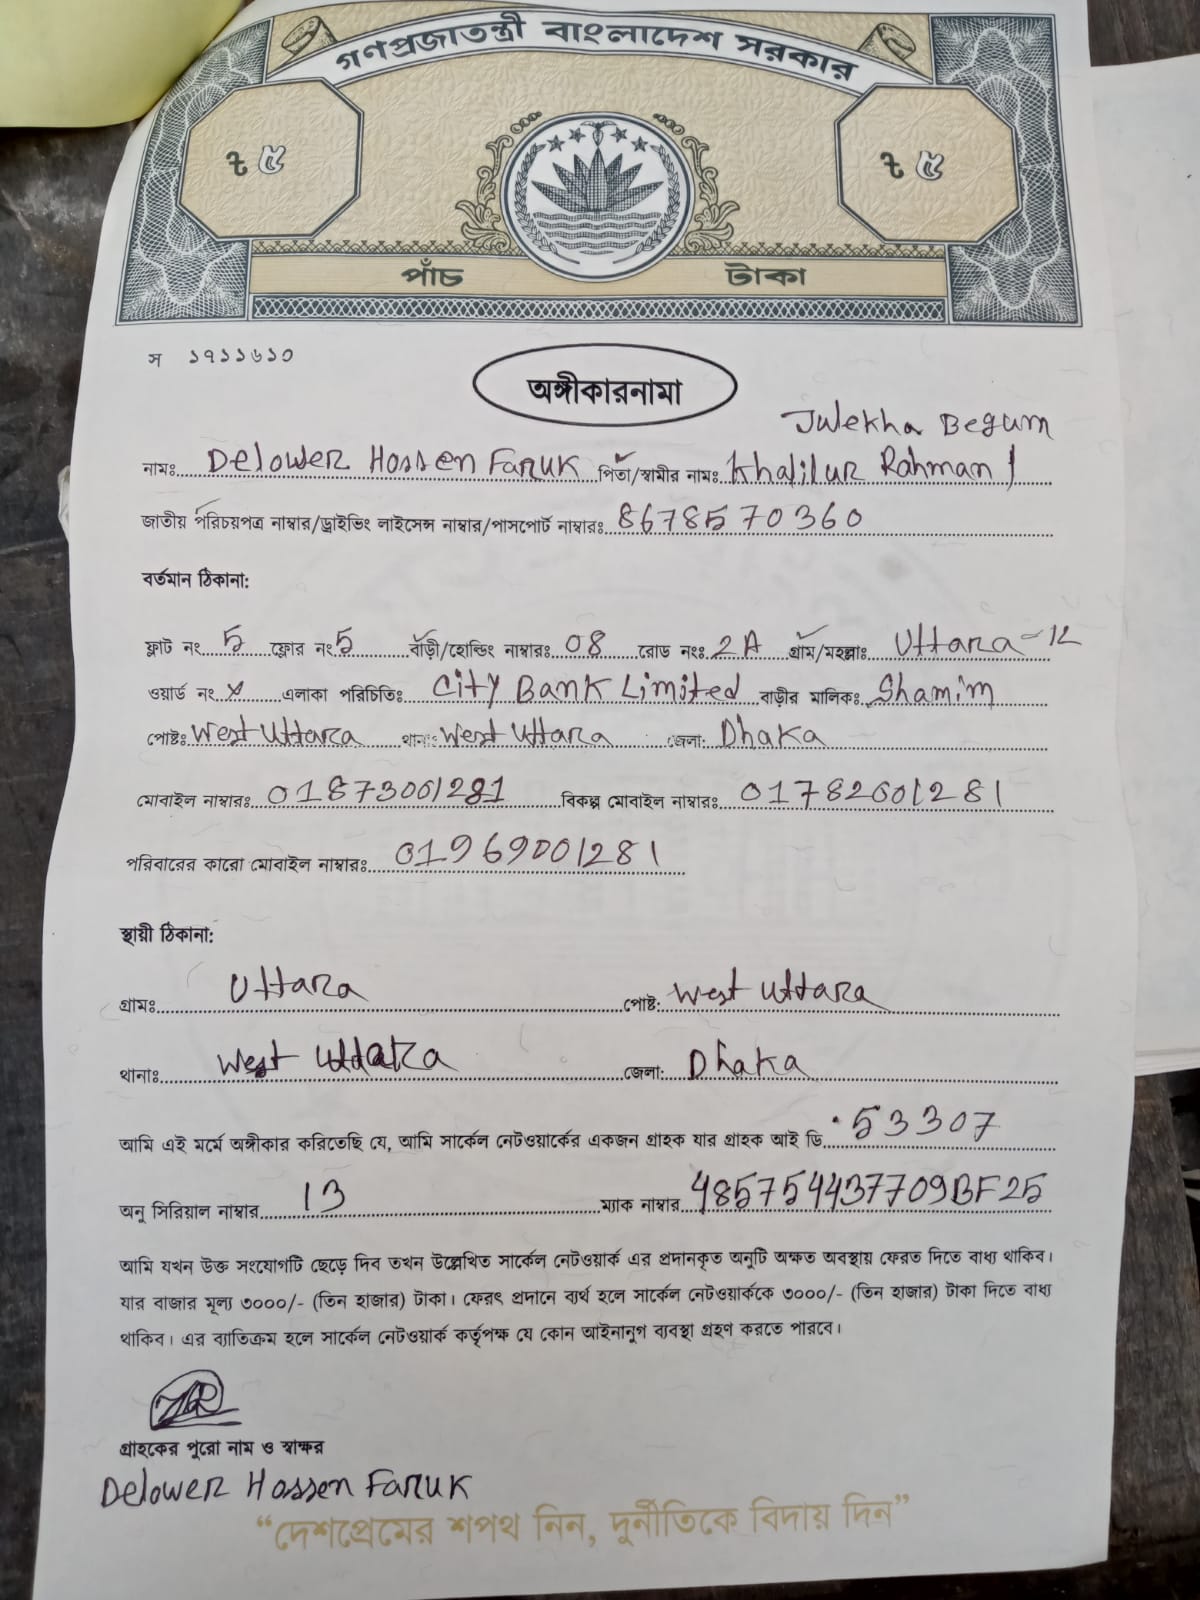 গণপ্রজাতন্ত্রী বাংলাদেশ সরকার
৳ ৫ ৳ ৫
পাঁচ টাকা
স ১৭১১৬১০
অঙ্গীকারনামা
Julekha Begum
নামঃ Delower Hossen Faruk পিতা/স্বামীর নামঃ Khalilur Rahman /
জাতীয় পরিচয়পত্র নাম্বার/ড্রাইভিং লাইসেন্স নাম্বার/পাসপোর্ট নাম্বারঃ 8678570360
বর্তমান ঠিকানা:
ফ্লাট নং 5 ফ্লোর নং 5 বাড়ী/হোল্ডিং নাম্বারঃ 08 রোড নংঃ 2A গ্রাম/মহল্লাঃ Uttara-12
ওয়ার্ড নং x এলাকা পরিচিতিঃ City Bank Limited বাড়ীর মালিকঃ Shamim
পোষ্টঃ West Uttara থানাঃ West Uttara জেলা: Dhaka
মোবাইল নাম্বারঃ 01873001281 বিকল্প মোবাইল নাম্বারঃ 01782601281
পরিবারের কারো মোবাইল নাম্বারঃ 01969001281
স্থায়ী ঠিকানা:
গ্রামঃ Uttara পোষ্ট: West Uttara
থানাঃ West Uttara জেলা: Dhaka
আমি এই মর্মে অঙ্গীকার করিতেছি যে, আমি সার্কেল নেটওয়ার্কের একজন গ্রাহক যার গ্রাহক আই ডি 53307
অনু সিরিয়াল নাম্বার 13 ম্যাক নাম্বার 485754437709BF25
আমি যখন উক্ত সংযোগটি ছেড়ে দিব তখন উল্লেখিত সার্কেল নেটওয়ার্ক এর প্রদানকৃত অনুটি অক্ষত অবস্থায় ফেরত দিতে বাধ্য থাকিব।
যার বাজার মূল্য ৩০০০/- (তিন হাজার) টাকা। ফেরৎ প্রদানে ব্যর্থ হলে সার্কেল নেটওয়ার্ককে ৩০০০/- (তিন হাজার) টাকা দিতে বাধ্য
থাকিব। এর ব্যাতিক্রম হলে সার্কেল নেটওয়ার্ক কর্তৃপক্ষ যে কোন আইনানুগ ব্যবস্থা গ্রহণ করতে পারবে।
গ্রাহকের পুরো নাম ও স্বাক্ষর
Delower Hossen Faruk
“দেশপ্রেমের শপথ নিন, দুর্নীতিকে বিদায় দিন”